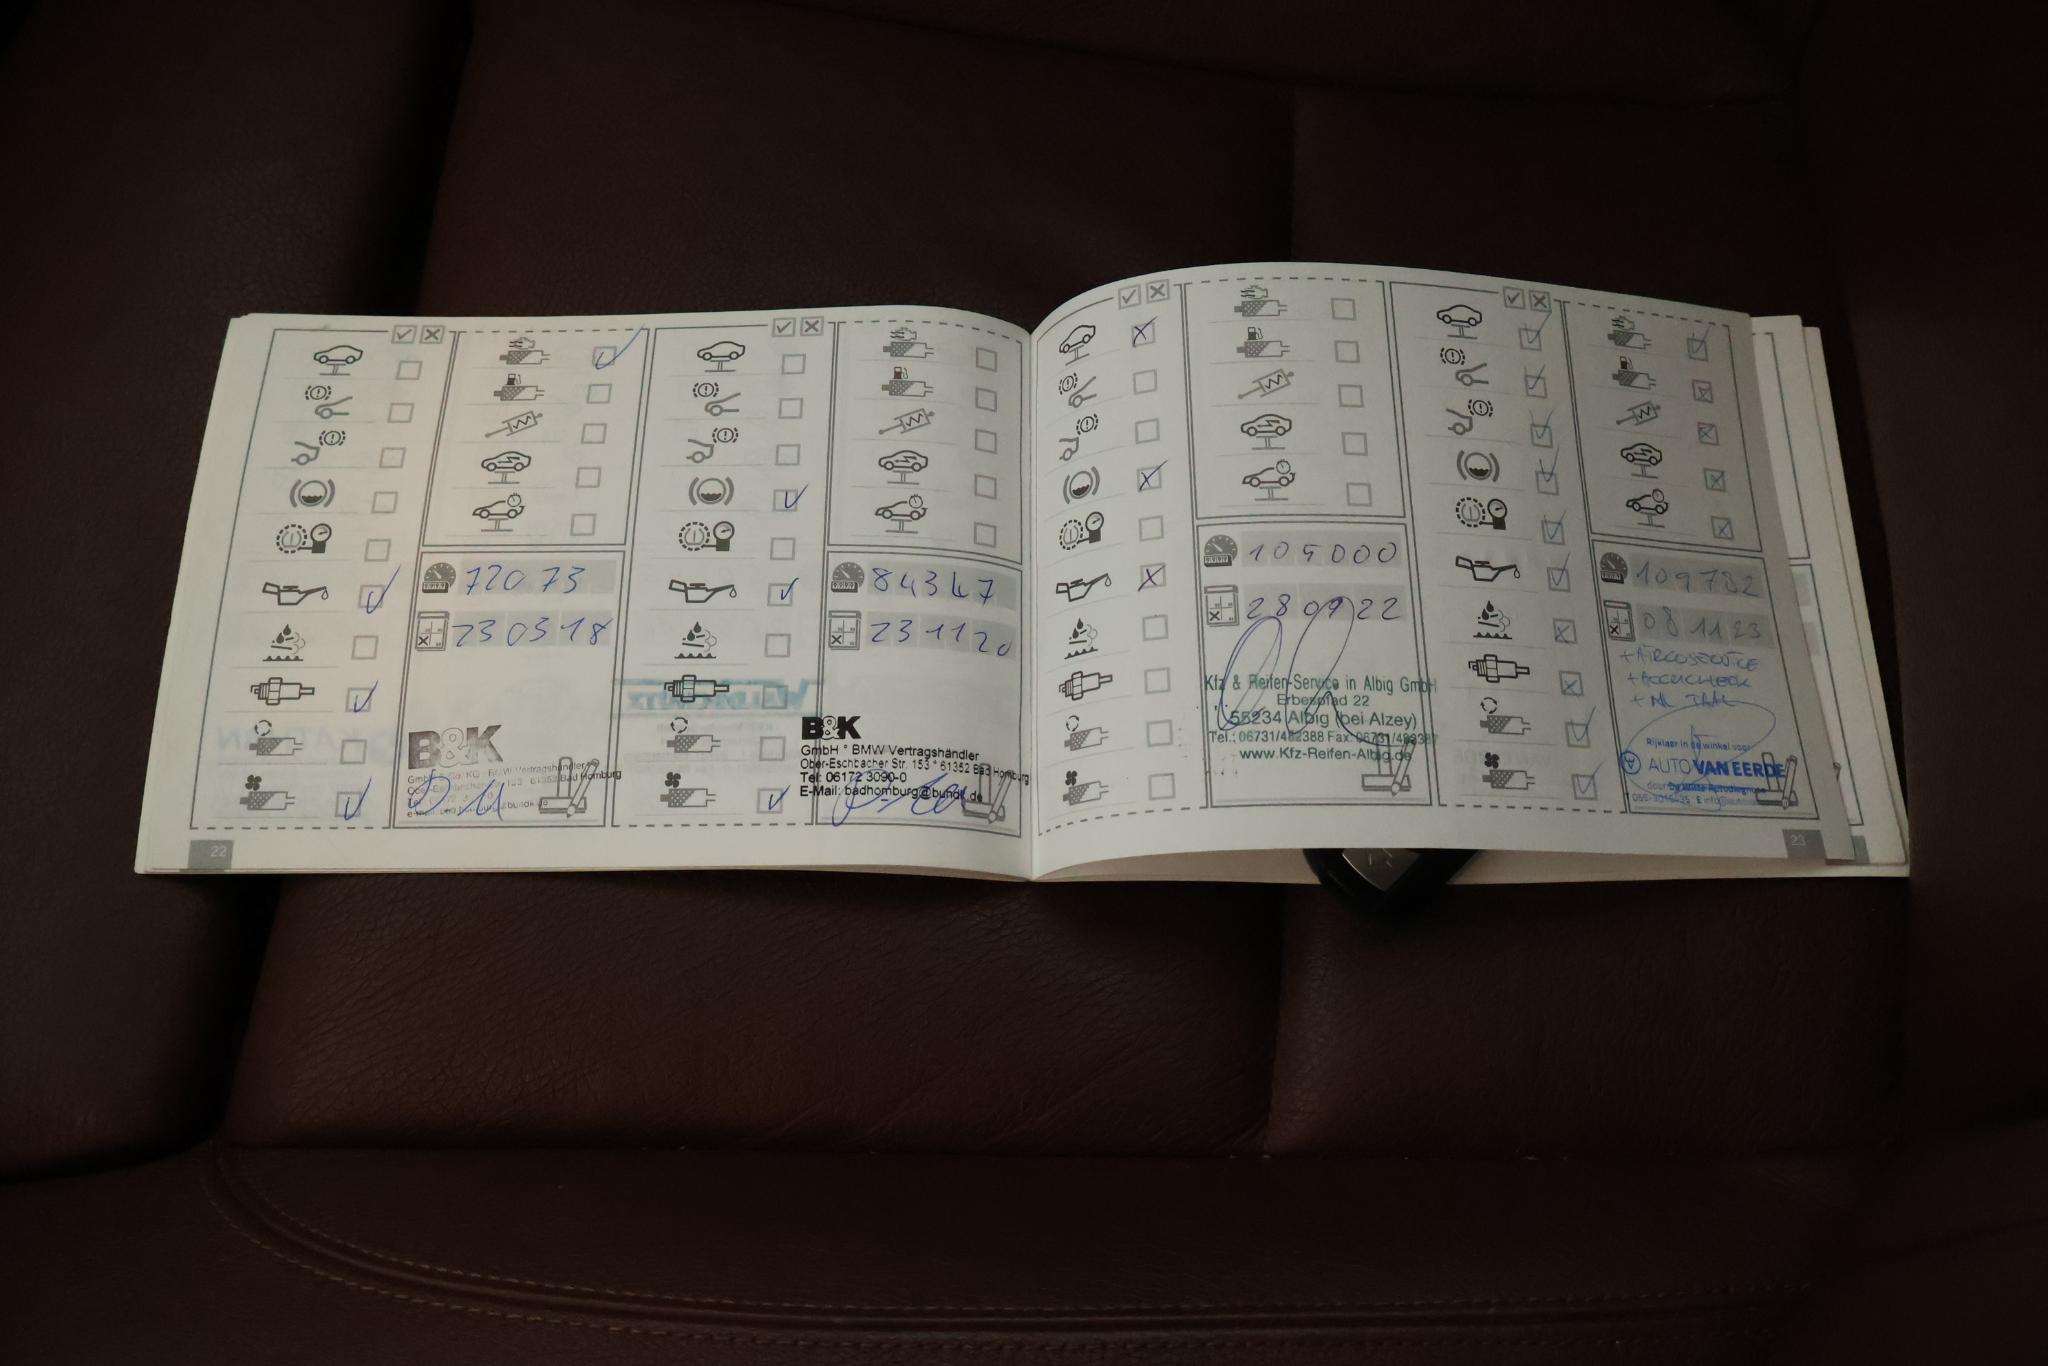 72073
230318
B&K
84347
231120
B&K
GmbH * BMW Vertragshändler
Ober-Eschbacher Str. 153 * 61352 Bad Homburg
Tel: 06172 3090-0
E-Mail: badhomburg@bundk.de
22
105000
280922
Kfz & Reifen-Service in Albig GmbH
Erbespfad 22
55234 Albig (bei Alzey)
Tel.: 06731/482388 Fax: 06731/482387
www.Kfz-Reifen-Albig.de
109782
081123
+ AIRCOSERVICE
+ ACCUCHECK
+ NL TAAL
Rijklaar in de winkel voor
AUTO VAN EERDE
23